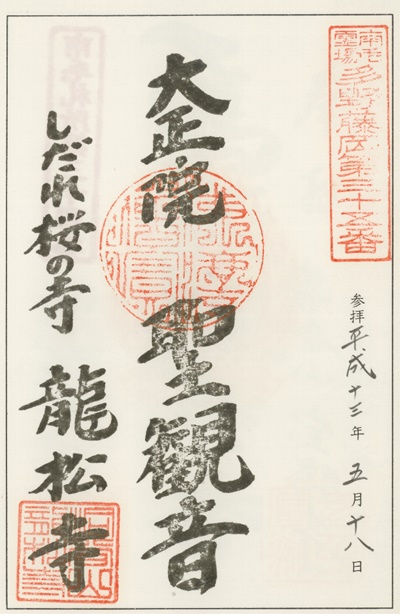 南毛霊場
多野藤岡第三十五番
参拝平成十三年 五月十八日
大正院 聖観音
しだれ桜の寺 龍松寺